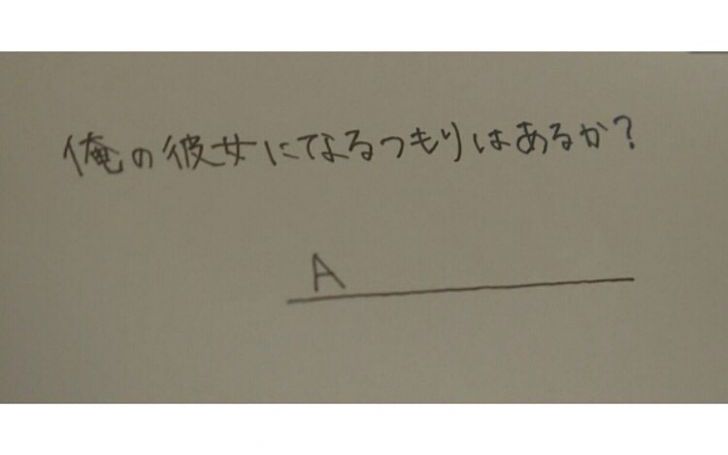 俺の彼女になるつもりはあるか？
A